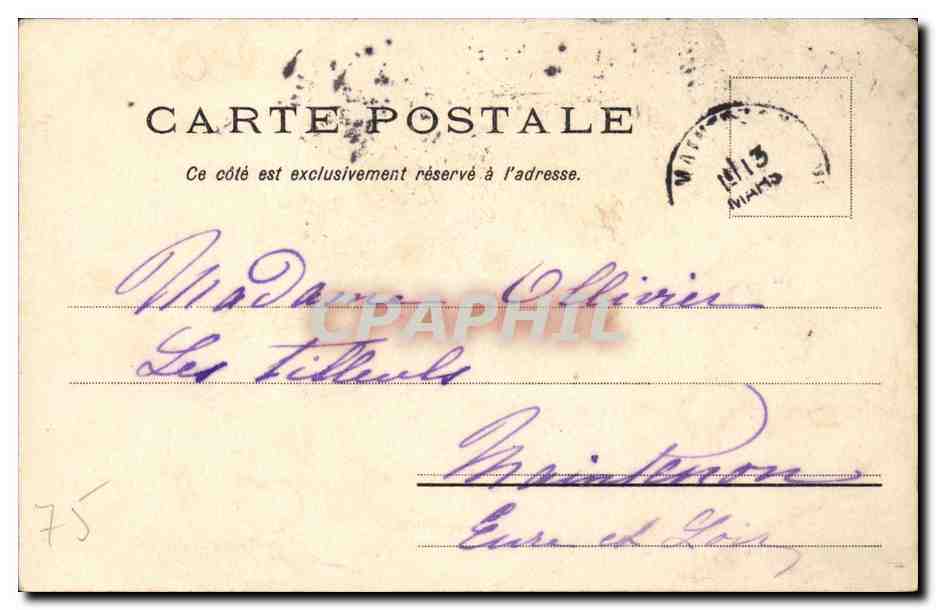 CARTE POSTALE
Ce côté est exclusivement réservé à l'adresse.
13
MARS
Madame Ollivier
CPAPHIL
Les Tilleuls
Maintenon
Eure et Loir
75